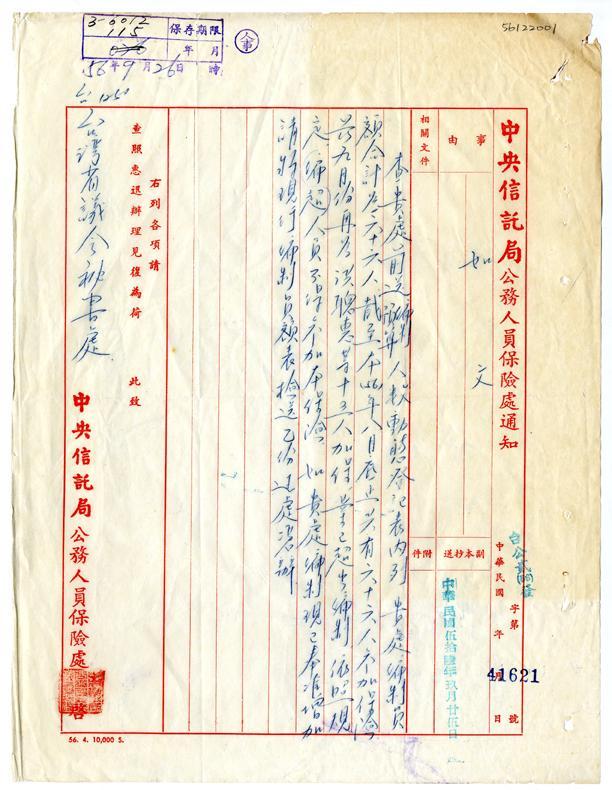 56122001
3-6012
115
保存期限
年 月
人事
56年9月26日 時
中央信託局公務人員保險處通知
中華民國 年 月 日
字第 號
41621
事由
如文
副本抄送
附件
中華民國伍拾陸年玖月廿伍日
相關文件
查貴處前送編制人數動態登記表內列 貴處編制員
額合計為六十六人截至本56年八月底止共有六十六人參加保險
茲九月份再為洪聰惠等十五人加保業已超出編制依照規
定編超人員不得參加本保險 如 貴處編制現已奉准增加
請將現行編制員額表檢送乙份過處憑辦
右列各項請
查照惠迅辦理見復為荷
此致
台灣省議會秘書處
中央信託局公務人員保險處 啓
56. 4. 10,000 S.